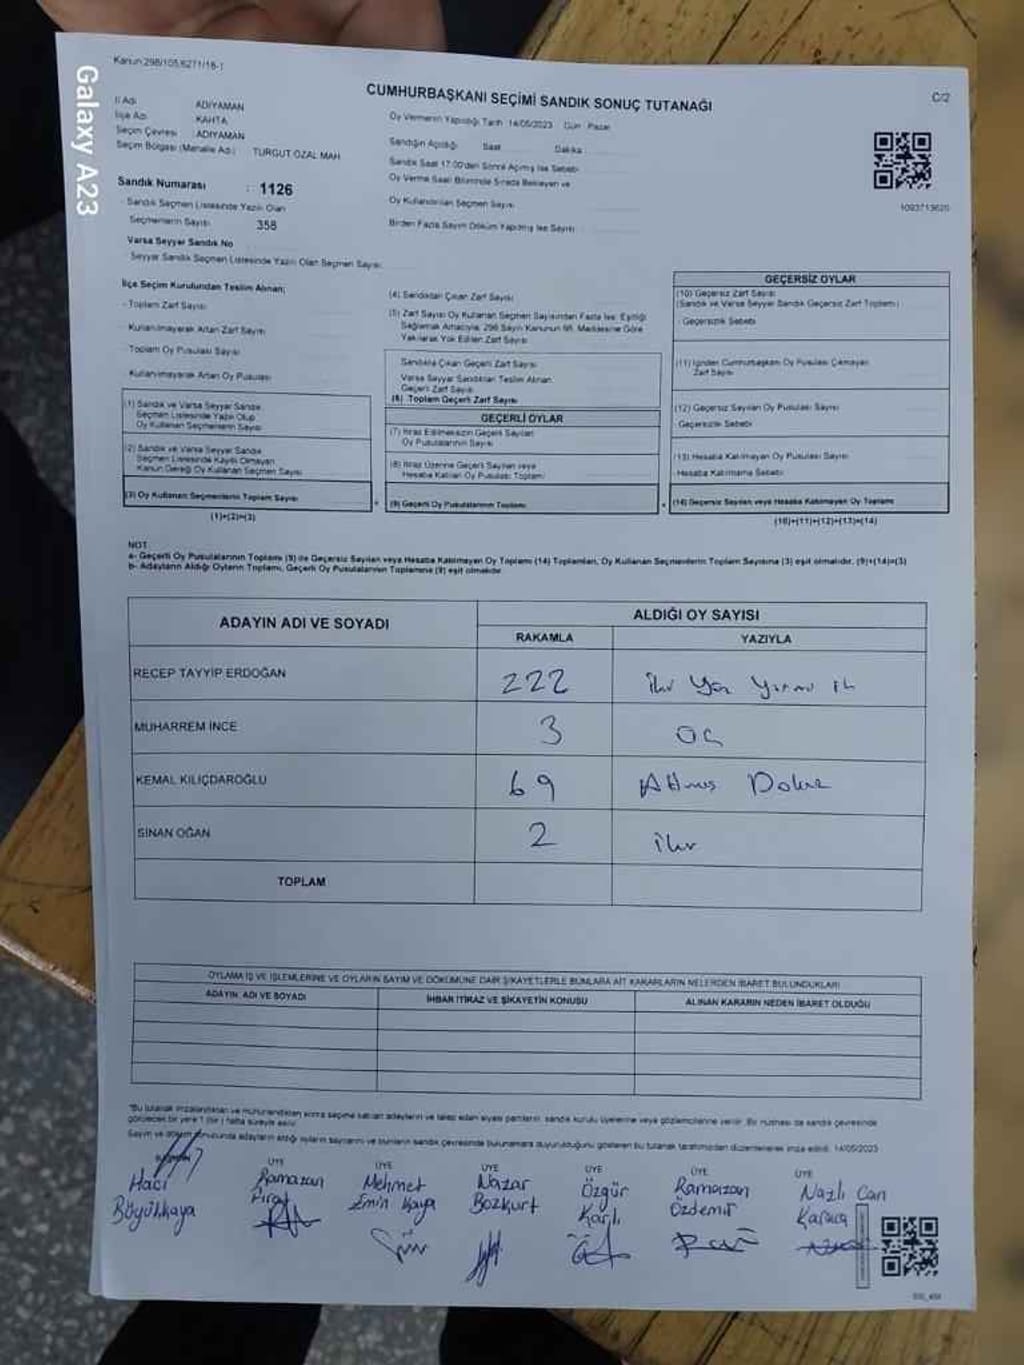 Galaxy A23
Kanun:298/105,6271/18-1
CUMHURBAŞKANI SEÇİMİ SANDIK SONUÇ TUTANAĞI
C/2
İl Adı ADIYAMAN
İlçe Adı KAHTA
Seçim Çevresi : ADIYAMAN
Seçim Bölgesi (Mahalle Adı) : TURGUT ÖZAL MAH
Oy Vermenin Yapıldığı Tarih 14/05/2023 Gün : Pazar
Sandığın Açıldığı Saat Dakika
Sandık Saat 17:00'den Sonra Açılmış İse Sebebi
Oy Verme Saati Bitiminde Sırada Bekleyen ve
Oy Kullandırılan Seçmen Sayısı
Birden Fazla Sayım Döküm Yapılmış İse Sayısı
1093713620
Sandık Numarası : 1126
Sandık Seçmen Listesinde Yazılı Olan
Seçmenlerin Sayısı 358
Varsa Seyyar Sandık No
Seyyar Sandık Seçmen Listesinde Yazılı Olan Seçmen Sayısı
İlçe Seçim Kurulundan Teslim Alınan;
- Toplam Zarf Sayısı
- Kullanılmayarak Artan Zarf Sayısı
- Toplam Oy Pusulası Sayısı
- Kullanılmayarak Artan Oy Pusulası
(1) Sandık ve Varsa Seyyar Sandık
Seçmen Listesinde Yazılı Olup
Oy Kullanan Seçmenlerin Sayısı
(2) Sandık ve Varsa Seyyar Sandık
Seçmen Listesinde Kaydı Olmayan
Kanun Gereği Oy Kullanan Seçmen Sayısı
(3) Oy Kullanan Seçmenlerin Toplam Sayısı
(1)+(2)=(3)
(4) Sandıktan Çıkan Zarf Sayısı
(5) Zarf Sayısı Oy Kullanan Seçmen Sayısından Fazla İse; Eşitliği
Sağlamak Amacıyla, 298 Sayılı Kanunun 98. Maddesine Göre
Yakılarak Yok Edilen Zarf Sayısı
Sandıkta Çıkan Geçerli Zarf Sayısı
Varsa Seyyar Sandıktan Teslim Alınan
Geçerli Zarf Sayısı
(6) Toplam Geçerli Zarf Sayısı
GEÇERLİ OYLAR
(7) İtiraz Edilmeksizin Geçerli Sayılan
Oy Pusulalarının Sayısı
(8) İtiraz Üzerine Geçerli Sayılan veya
Hesaba Katılan Oy Pusulası Toplamı
(9) Geçerli Oy Pusulalarının Toplamı
GEÇERSİZ OYLAR
(10) Geçersiz Zarf Sayısı
(Sandık ve Varsa Seyyar Sandık Geçersiz Zarf Toplamı)
- Geçersizlik Sebebi
(11) İçinden Cumhurbaşkanı Oy Pusulası Çıkmayan
Zarf Sayısı
(12) Geçersiz Sayılan Oy Pusulası Sayısı
Geçersizlik Sebebi
(13) Hesaba Katılmayan Oy Pusulası Sayısı
Hesaba Katılmama Sebebi
(14) Geçersiz Sayılan veya Hesaba Katılmayan Oy Toplamı
(10)+(11)+(12)+(13)=(14)
NOT
a- Geçerli Oy Pusulalarının Toplamı (9) ile Geçersiz Sayılan veya Hesaba Katılmayan Oy Toplamı (14) Toplamları, Oy Kullanan Seçmenlerin Toplam Sayısına (3) eşit olmalıdır. (9)+(14)=(3)
b- Adayların Aldığı Oyların Toplamı, Geçerli Oy Pusulalarının Toplamına (9) eşit olmalıdır
ADAYIN ADI VE SOYADI
ALDIĞI OY SAYISI
RAKAMLA YAZIYLA
RECEP TAYYİP ERDOĞAN 222 iki Yüz Yirmi iki
MUHARREM İNCE 3 Üç
KEMAL KILIÇDAROĞLU 69 Altmış Dokuz
SİNAN OĞAN 2 iki
TOPLAM
OYLAMA İŞ VE İŞLEMLERİNE VE OYLARIN SAYIM VE DÖKÜMÜNE DAİR ŞİKAYETLERLE BUNLARA AİT KARARLARIN NELERDEN İBARET BULUNDUKLARI
ADAYIN ADI VE SOYADI İHBAR İTİRAZ VE ŞİKAYETİN KONUSU ALINAN KARARIN NEDEN İBARET OLDUĞU
ÜYE ÜYE ÜYE ÜYE ÜYE ÜYE
Hacı Ramazan Mehmet Nazar Özgür Ramazan Nazlı Can
Büyükkaya Fırat Emin Kaya Bozkurt Karlı Özdemir Karaca